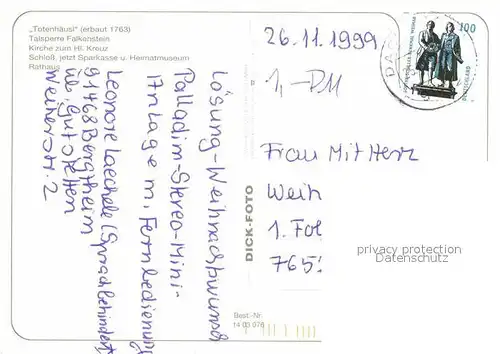 „Totenhäusl" (erbaut 1763)
Talsperre Falkenstein
Kirche zum Hl. Kreuz
Schloß, jetzt Sparkasse u. Heimatmuseum
Rathaus
Lösung-Weihnachtswunsch
Palladim-Stereo-Mini-
Anlage m. Fernbedienung
Leonore Laechele (Sprachbehindert)
91468 Bergtheim
üb. Gutstetten
Weiherstr. 2
DICK-FOTO
Best.-Nr.
14 03 076
26.11.1999
1,-DM
100
DEUTSCHLAND
Frau Mit Herz
Weih
1. Fol
765
privacy protection
Datenschutz